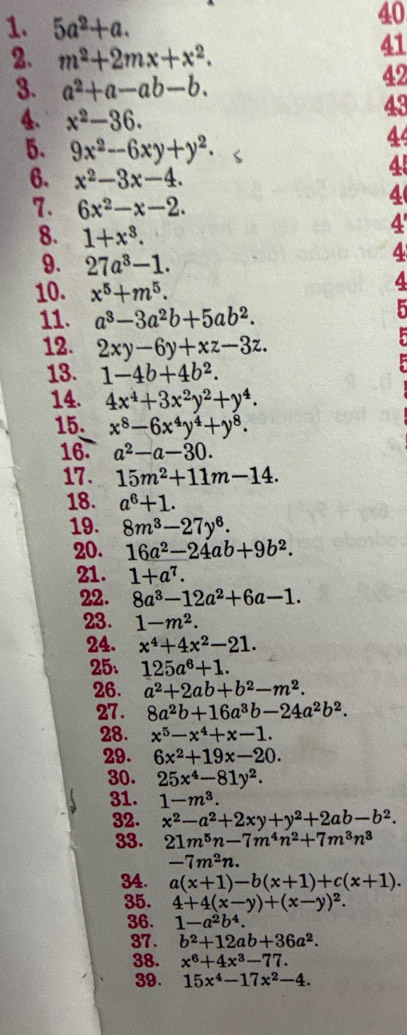 1. 5a²+a.
2. m²+2mx+x².
3. a²+a−ab−b.
4. x²−36.
5. 9x²−6xy+y².
6. x²−3x−4.
7. 6x²−x−2.
8. 1+x³.
9. 27a³−1.
10. x⁵+m⁵.
11. a³−3a²b+5ab².
12. 2xy−6y+xz−3z.
13. 1−4b+4b².
14. 4x⁴+3x²y²+y⁴.
15. x⁸−6x⁴y⁴+y⁸.
16. a²−a−30.
17. 15m²+11m−14.
18. a⁶+1.
19. 8m³−27y⁶.
20. 16a²−24ab+9b².
21. 1+a⁷.
22. 8a³−12a²+6a−1.
23. 1−m².
24. x⁴+4x²−21.
25. 125a⁶+1.
26. a²+2ab+b²−m².
27. 8a²b+16a³b−24a²b².
28. x⁵−x⁴+x−1.
29. 6x²+19x−20.
30. 25x⁴−81y².
31. 1−m³.
32. x²−a²+2xy+y²+2ab−b².
33. 21m⁵n−7m⁴n²+7m³n³
−7m²n.
34. a(x+1)−b(x+1)+c(x+1).
35. 4+4(x−y)+(x−y)².
36. 1−a²b⁴.
37. b²+12ab+36a².
38. x⁶+4x³−77.
39. 15x⁴−17x²−4.
40
41
42
43